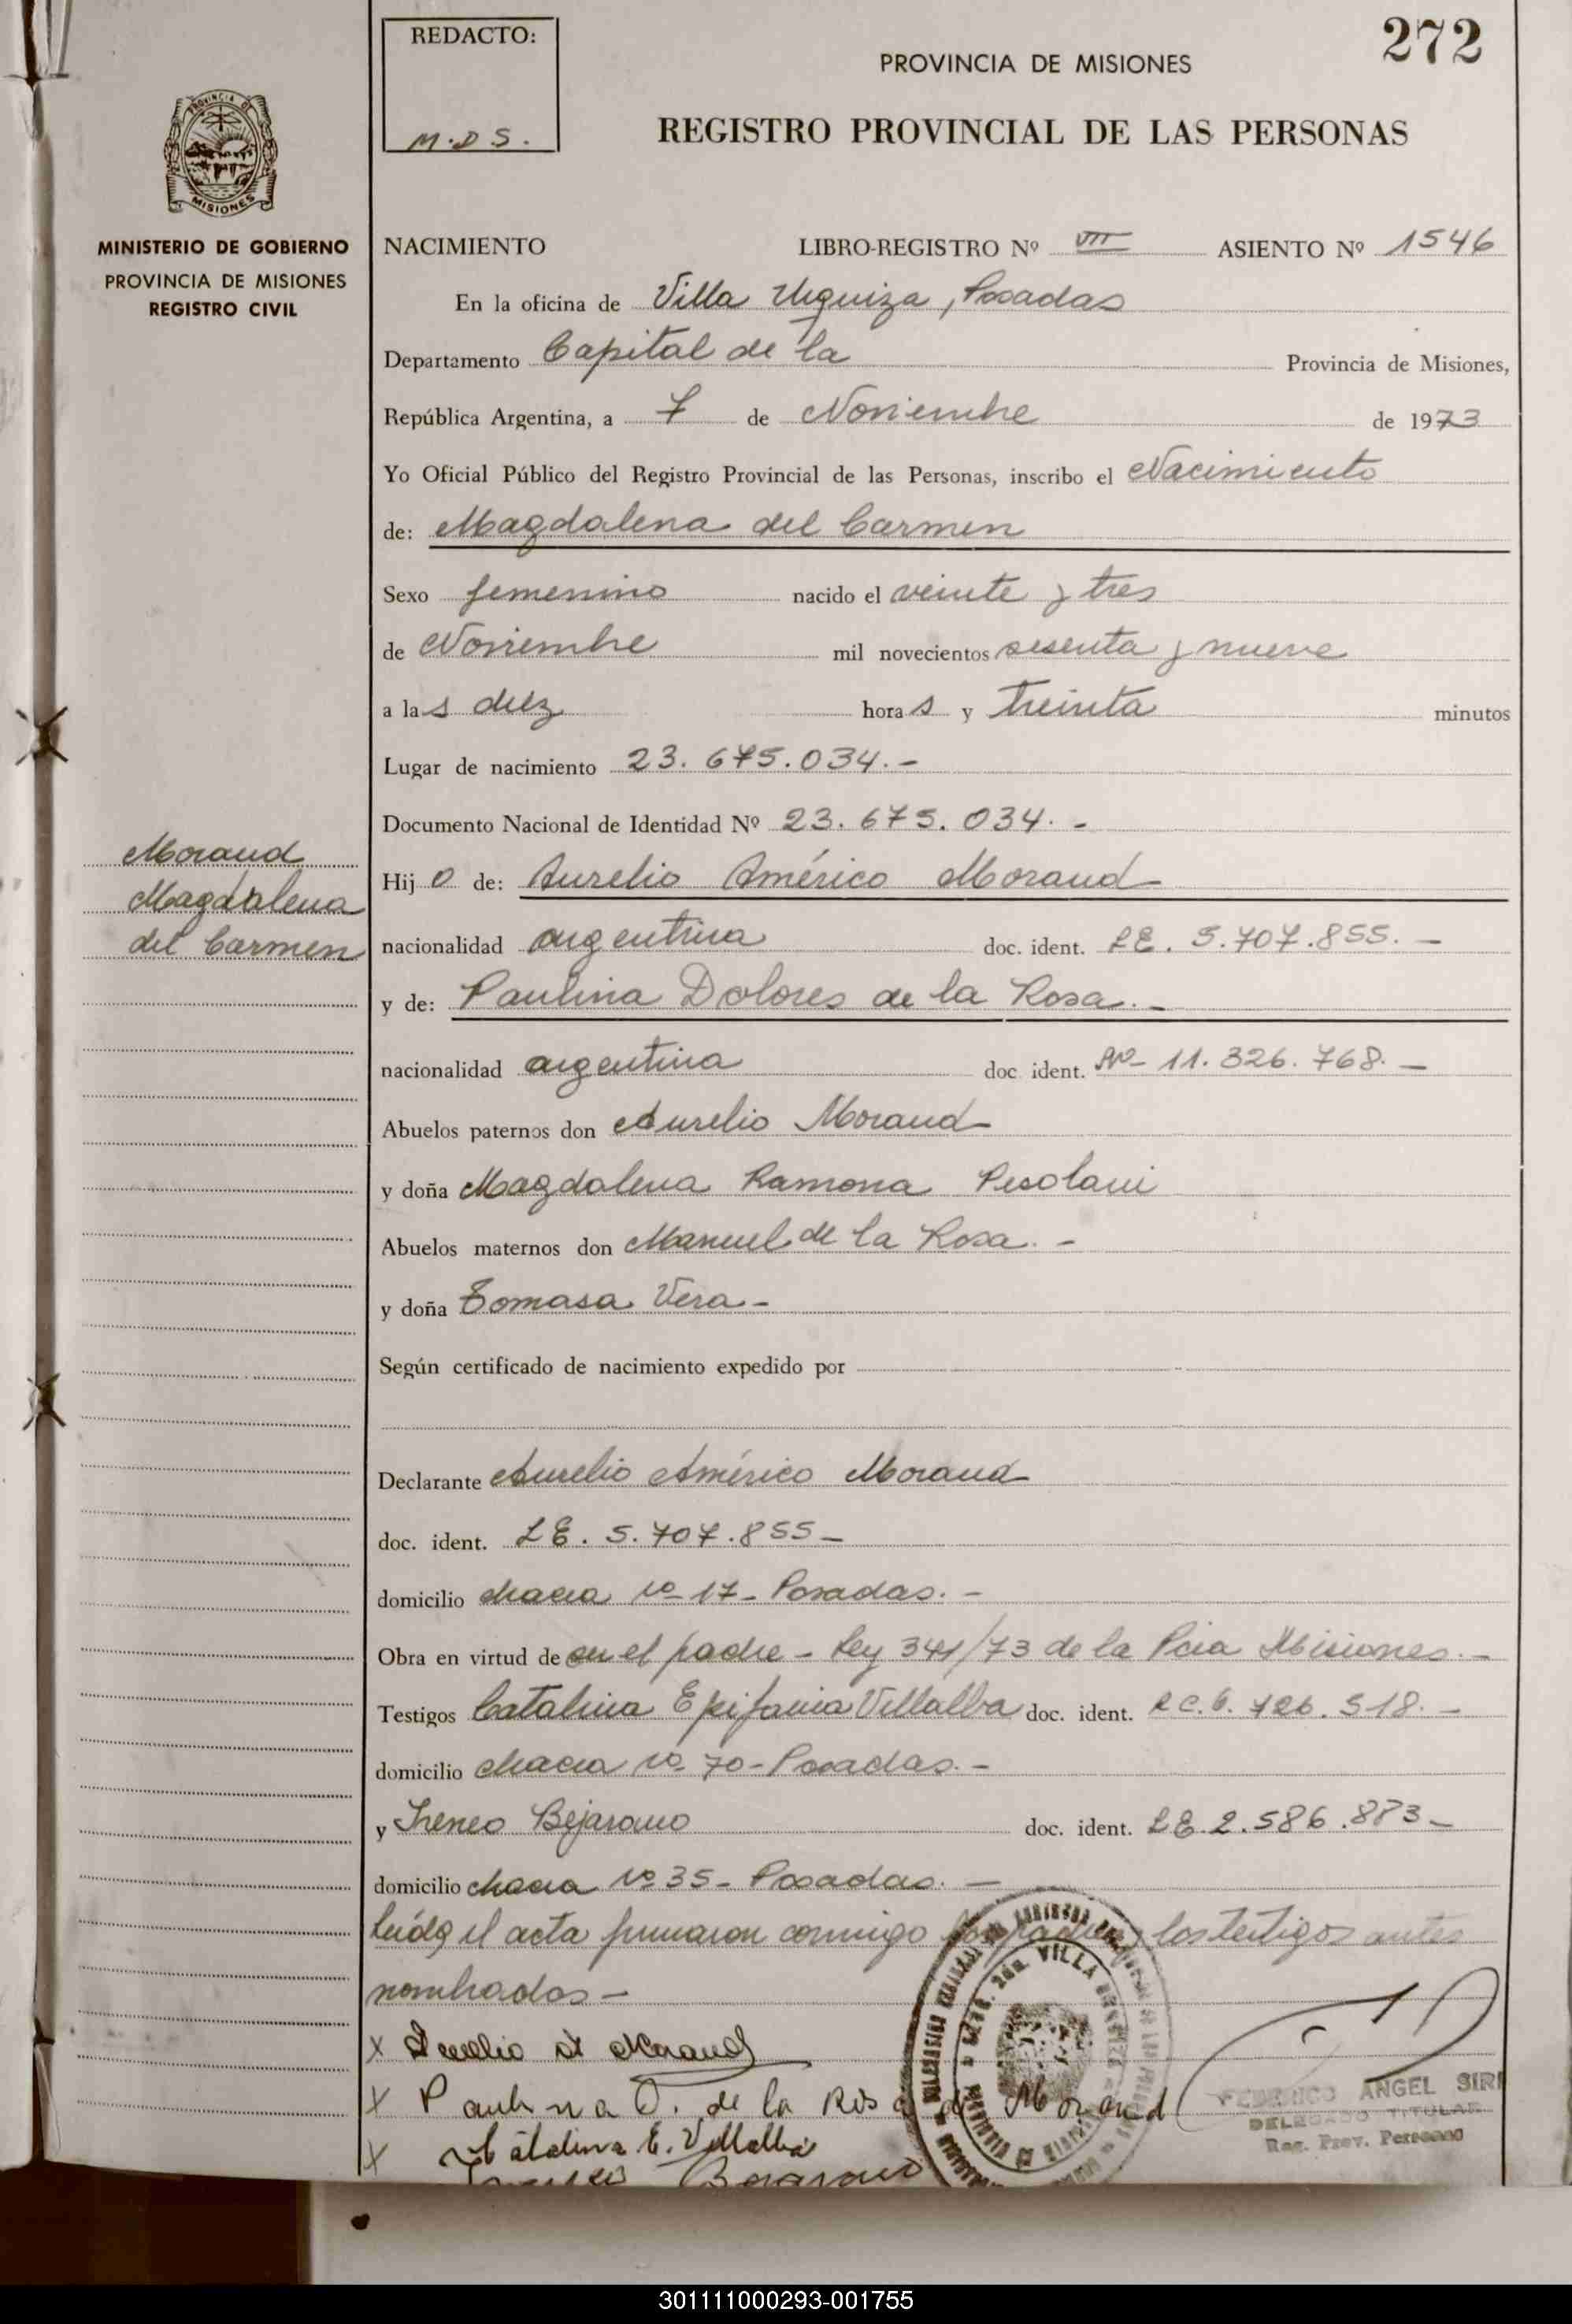 272
REDACTO:
M.D S.
PROVINCIA DE MISIONES
REGISTRO PROVINCIAL DE LAS PERSONAS
PROVINCIA DE
MISIONES
MINISTERIO DE GOBIERNO
PROVINCIA DE MISIONES
REGISTRO CIVIL
NACIMIENTO LIBRO-REGISTRO Nº VII ASIENTO Nº 1546
En la oficina de Villa Urquiza, Posadas
Departamento Capital de la Provincia de Misiones,
República Argentina, a 7 de Noviembre de 1973
Yo Oficial Público del Registro Provincial de las Personas, inscribo el Nacimiento
de: Magdalena del Carmen
Sexo femenino nacido el veinte y tres
de Noviembre mil novecientos sesenta y nueve
a las diez horas y treinta minutos
Lugar de nacimiento 23.675.034.-
Documento Nacional de Identidad Nº 23.675.034.-
Morand
Magdalena
del Carmen
Hijo de: Aurelio Américo Morand
nacionalidad argentina doc. ident. LE. 5.707.855.-
y de: Paulina Dolores de la Rosa.-
nacionalidad argentina doc. ident. Nº 11.326.768.-
Abuelos paternos don Aurelio Morand
y doña Magdalena Ramona Pesolani
Abuelos maternos don Manuel de la Rosa.-
y doña Tomasa Vera-
Según certificado de nacimiento expedido por
Declarante Aurelio Américo Morand
doc. ident. LE. 5.707.855-
domicilio chacra nº 17- Posadas.-
Obra en virtud de ser el padre - Ley 341/73 de la Pcia Misiones.-
Testigos Catalina Epifania Villalba doc. ident. LC. 6.726.518.-
domicilio chacra nº 70- Posadas.-
y Ireneo Bejarano doc. ident. LE 2.586.873-
domicilio chacra nº 35- Posadas.-
leída el acta firmaron conmigo los padres y los testigos antes
nombrados-
X Aurelio A Morand
X Paulina D. de la Rosa de Morand
X Catalina E. Villalba
Bejarano
VILLA URQUIZA
FEDERICO ANGEL SIRI
DELEGADO TITULAR
Reg. Prov. Personas
301111000293-001755